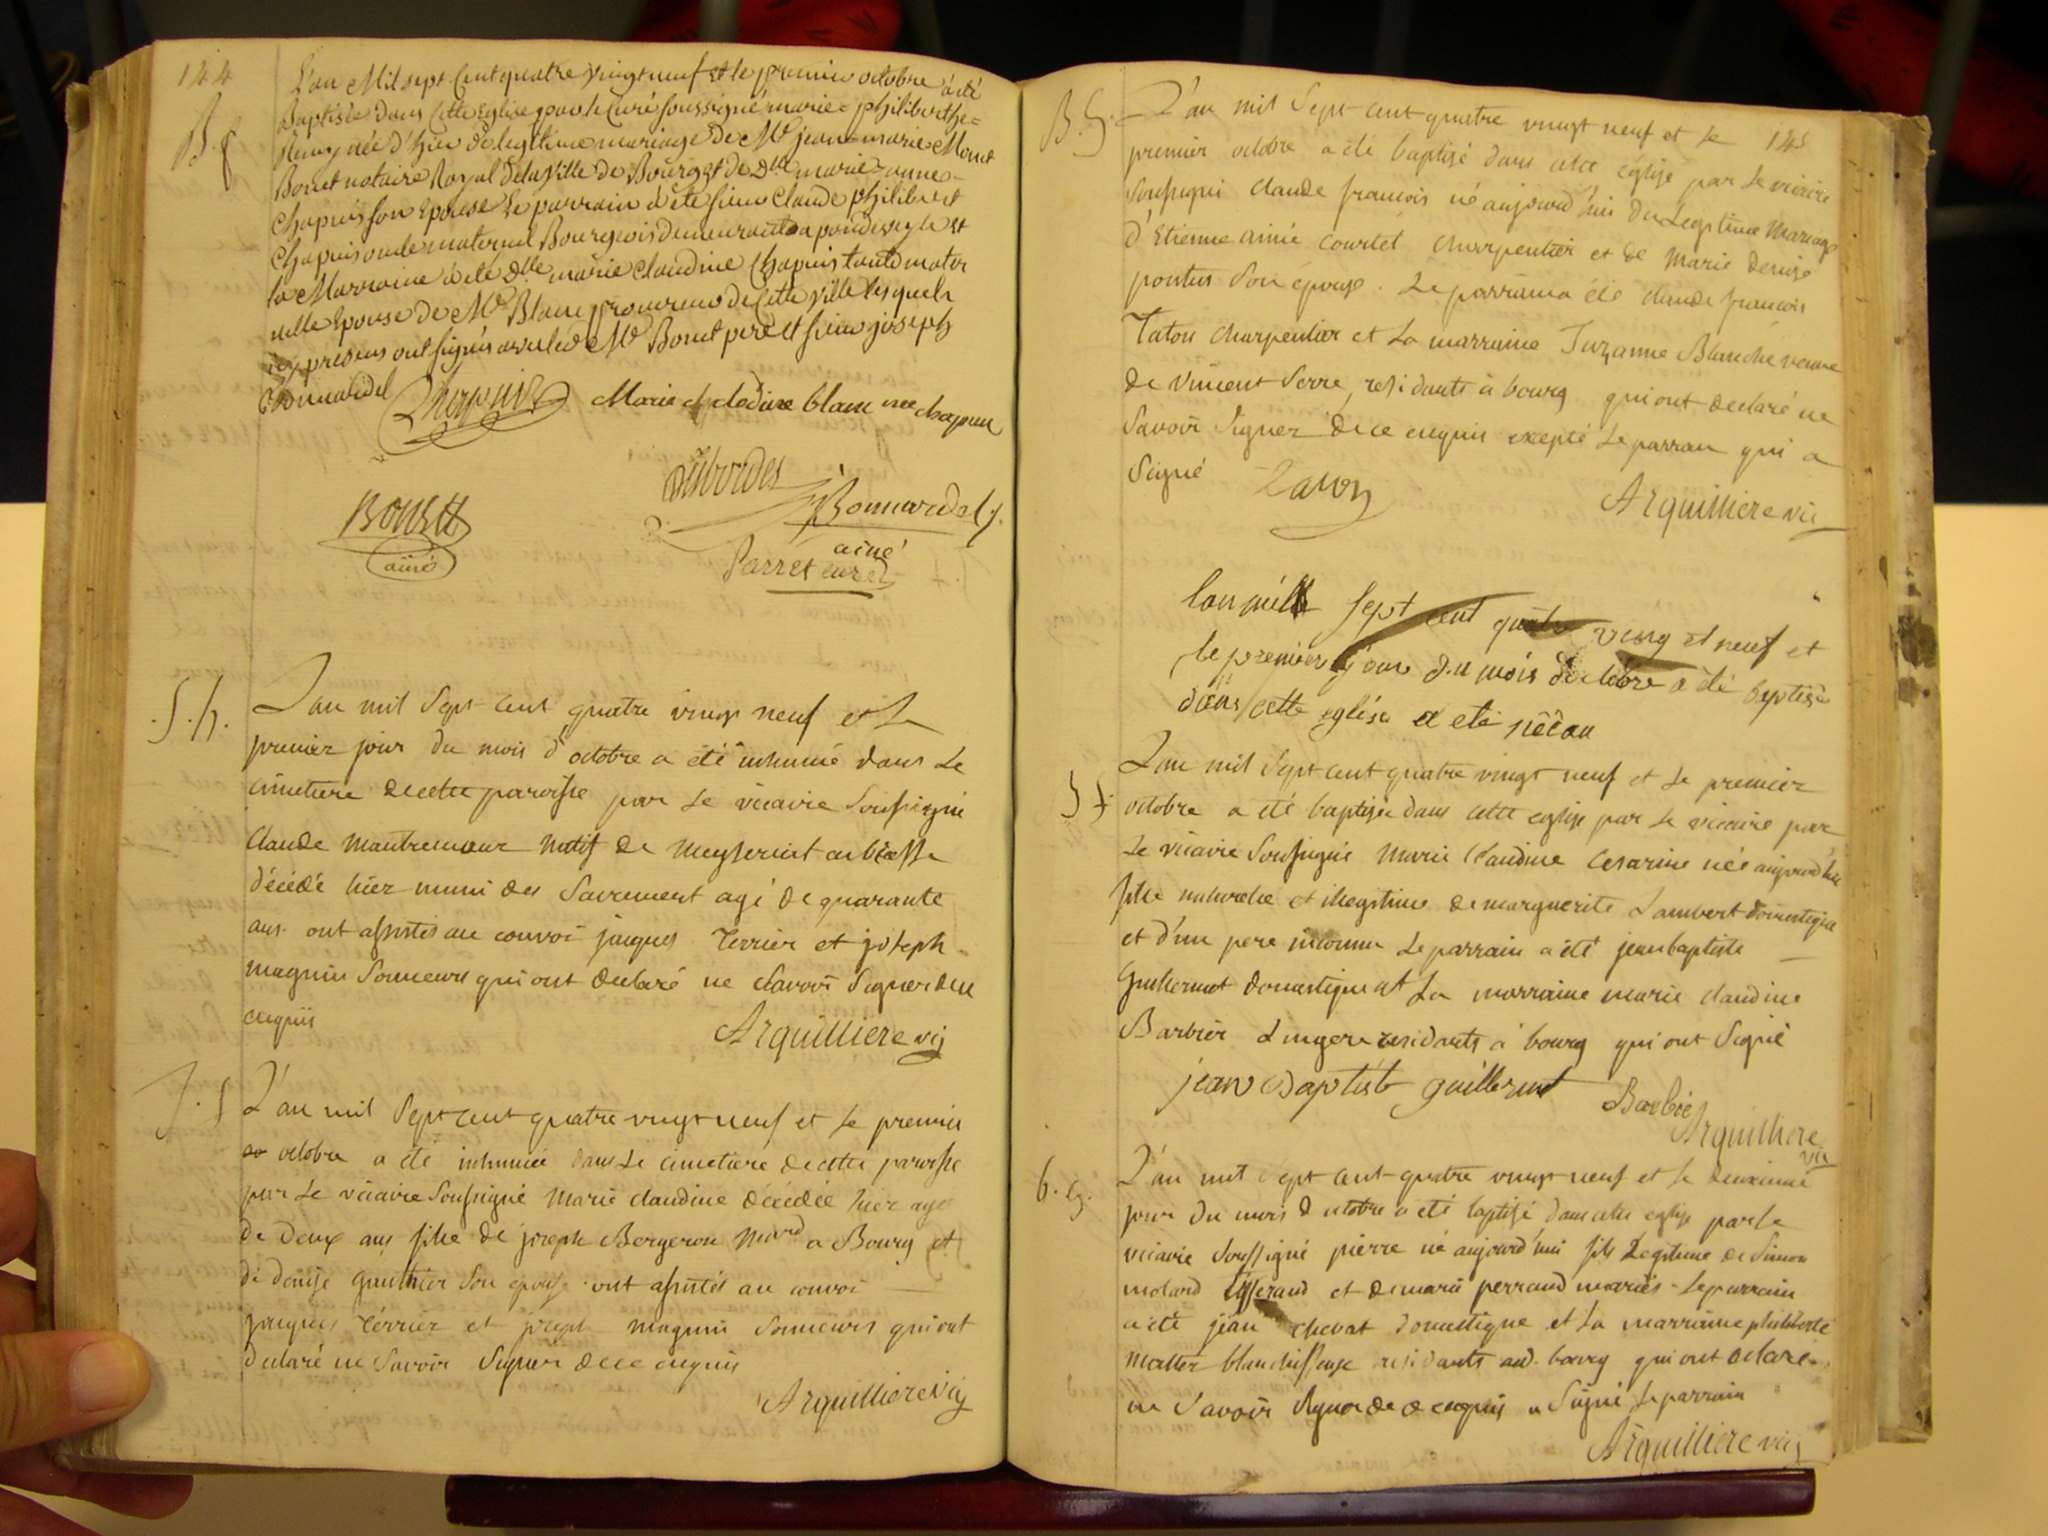 144
B. f
L'an Mil sept Cent quatre vingt neuf et le premier octobre à été
Baptisée dans Cette Eglise par le Curé soussigné marie = philiberthe =
née d'hier de legitime mariage de Mr jean = marie = Monet
Bonet notaire Royal de la ville de Bourg et de Dlle marie = anne =
Chapuis son Epouse Le parrain à été sieur Claude philibert
Chapuis oncle maternel Bourgeois demeurant a pondevegle et
la Marraine à été Dlle marie Claudine Chapuis tante mater
nelle Epouse de Mr Blanc procureur de Cette ville lesquels
icy presens ont signés avec led Mr Bonet pere et sieur joseph
Bonnardel Chapuis Marie clodine blanc nee chapuis
Desbordes
Bonet Bonnardel j.
ainé ainé
Parret curé
S. h.
L'an mil Sept cent quatre vingt neuf et le
premier jour du mois d'octobre a été inhumé dans Le
cimetiere de cette paroisse par Le vicaire Soussigné
Claude mantremeur natif de meyseriat en bresse
décédé hier muni des Sacrement agé de quarante
ans ont assistés au convoi jacques Terrier et joseph
magnin Sonneurs qui ont declaré ne Savoir Signer de ce
enquis Arquilliere vic
S. f
L'an mil Sept cent quatre vingt neuf et Le premier
octobre a été inhumée dans Le cimetiere de cette paroisse
par Le vicaire Soussigné marie claudine décédée hier agé
de deux ans fille de joseph Bergeron mard a Bourg et
de denise gauthier Son epouse ont assistés au convoi
jacques Terrier et joseph magnin Sonneurs qui ont
declaré ne Savoir Signer de ce enquis
Arquilliere vic
145
B. G.
L'an mil Sept cent quatre vingt neuf et Le
premier octobre a été baptisé dans cette Eglise par Le vicaire
Soussigné claude francois né aujourd'hui du Legitime Mariage
d'Etienne aimé courtet charpentier et de marie denise
pontus Son épouse. Le parrain a été claude francois
Taton charpentier et La marraine Suzanne Blanche veuve
de vincent Serre, residants à bourg qui ont declaré ne
Savoir Signer de ce enquis excepté Le parrain qui a
Signé Taton
Arquilliere vic
lan mille sept cent quatre ving et neuf et
le premier jour du mois doctobre a été baptisé
dans cette eglise a eté
S f
L'an mil Sept cent quatre vingt neuf et Le premier
octobre a été baptisée dans cette eglise par Le vicaire par
Le vicaire Soussigné marie Claudine Cesarine née aujourd'hui
fille naturelle et illegitime de marguerite Lambert domestique
et d'un pere inconnu Le parrain a été jean baptiste
Guillermot domestique et La marraine marie claudine
Barbier Lingere residants à bourg qui ont Signé
jean Baptiste guillermot Barbier
Arquilliere
vic
b. g.
L'an mil Sept cent quatre vingt neuf et Le deuxieme
jour du mois d'octobre a été baptisé dans cette eglise par Le
vicaire Soussigné pierre né aujourd'hui fils Legitime de Simon
molard tisserand et de marie perraud mariés Le parrain
a été jean chevat domestique et La marraine philiberte
mettier blanchisseuse residants aud. bourg qui ont declaré
ne Savoir Signer de ce enquis a Signé Le parrain
Arquilliere vic